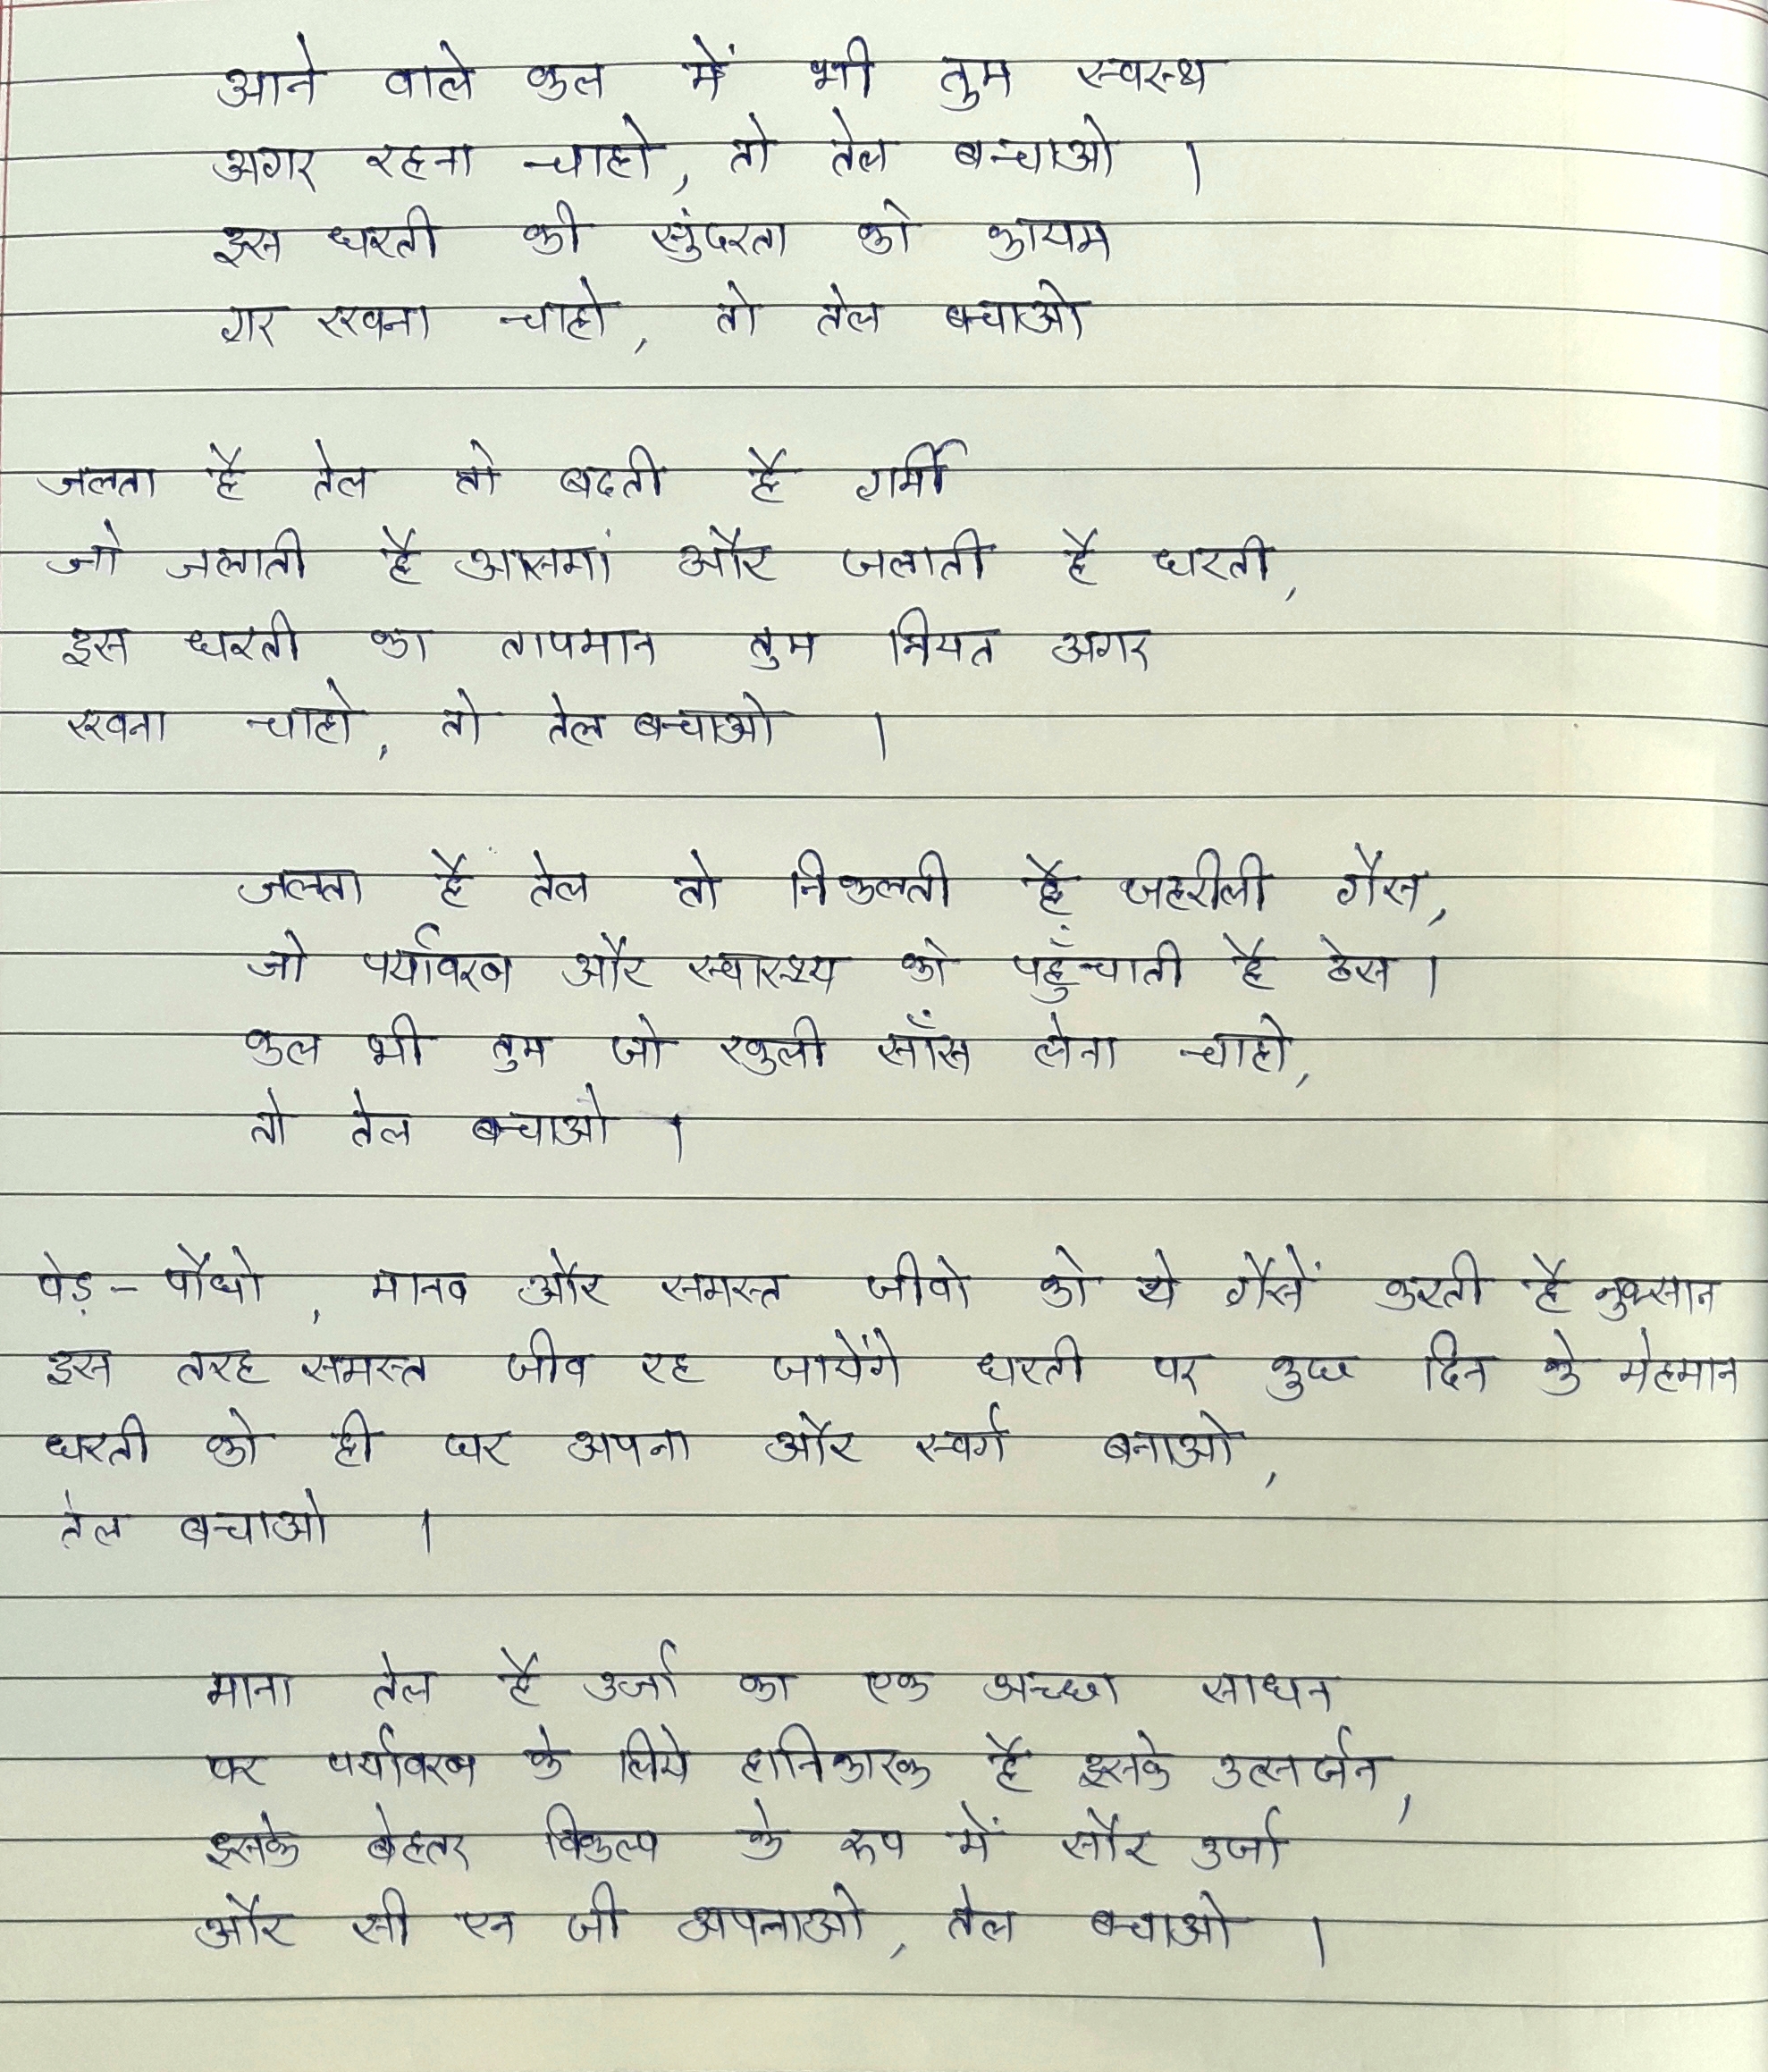 आने वाले कल में भी तुम स्वस्थ
अगर रहना चाहो, तो तेल बचाओ ।
इस धरती की सुंदरता को कायम
गर रखना चाहो, तो तेल बचाओ
जलता है तेल तो बढती है गर्मी
जो जलाती है आसमां और जलाती है धरती,
इस धरती का तापमान तुम नियत अगर
रखना चाहो, तो तेल बचाओ ।
जलता है तेल तो निकलती है जहरीली गैस,
जो पर्यावरण और स्वास्थ्य को पहुँचाती है ठेस ।
कल भी तुम जो खुली साँस लेना चाहो,
तो तेल बचाओ ।
पेड़ - पौधो , मानव और समस्त जीवो को ये गैसें करती है नुकसान
इस तरह समस्त जीव रह जायेंगे धरती पर कुछ दिन के मेहमान
धरती को ही घर अपना और स्वर्ग बनाओ,
तेल बचाओ ।
माना तेल है उर्जा का एक अच्छा साधन
पर पर्यावरण के लिये हानिकारक है इसके उत्सर्जन,
इसके बेहतर विकल्प के रूप में सौर उर्जा
और सी एन जी अपनाओ, तेल बचाओ ।